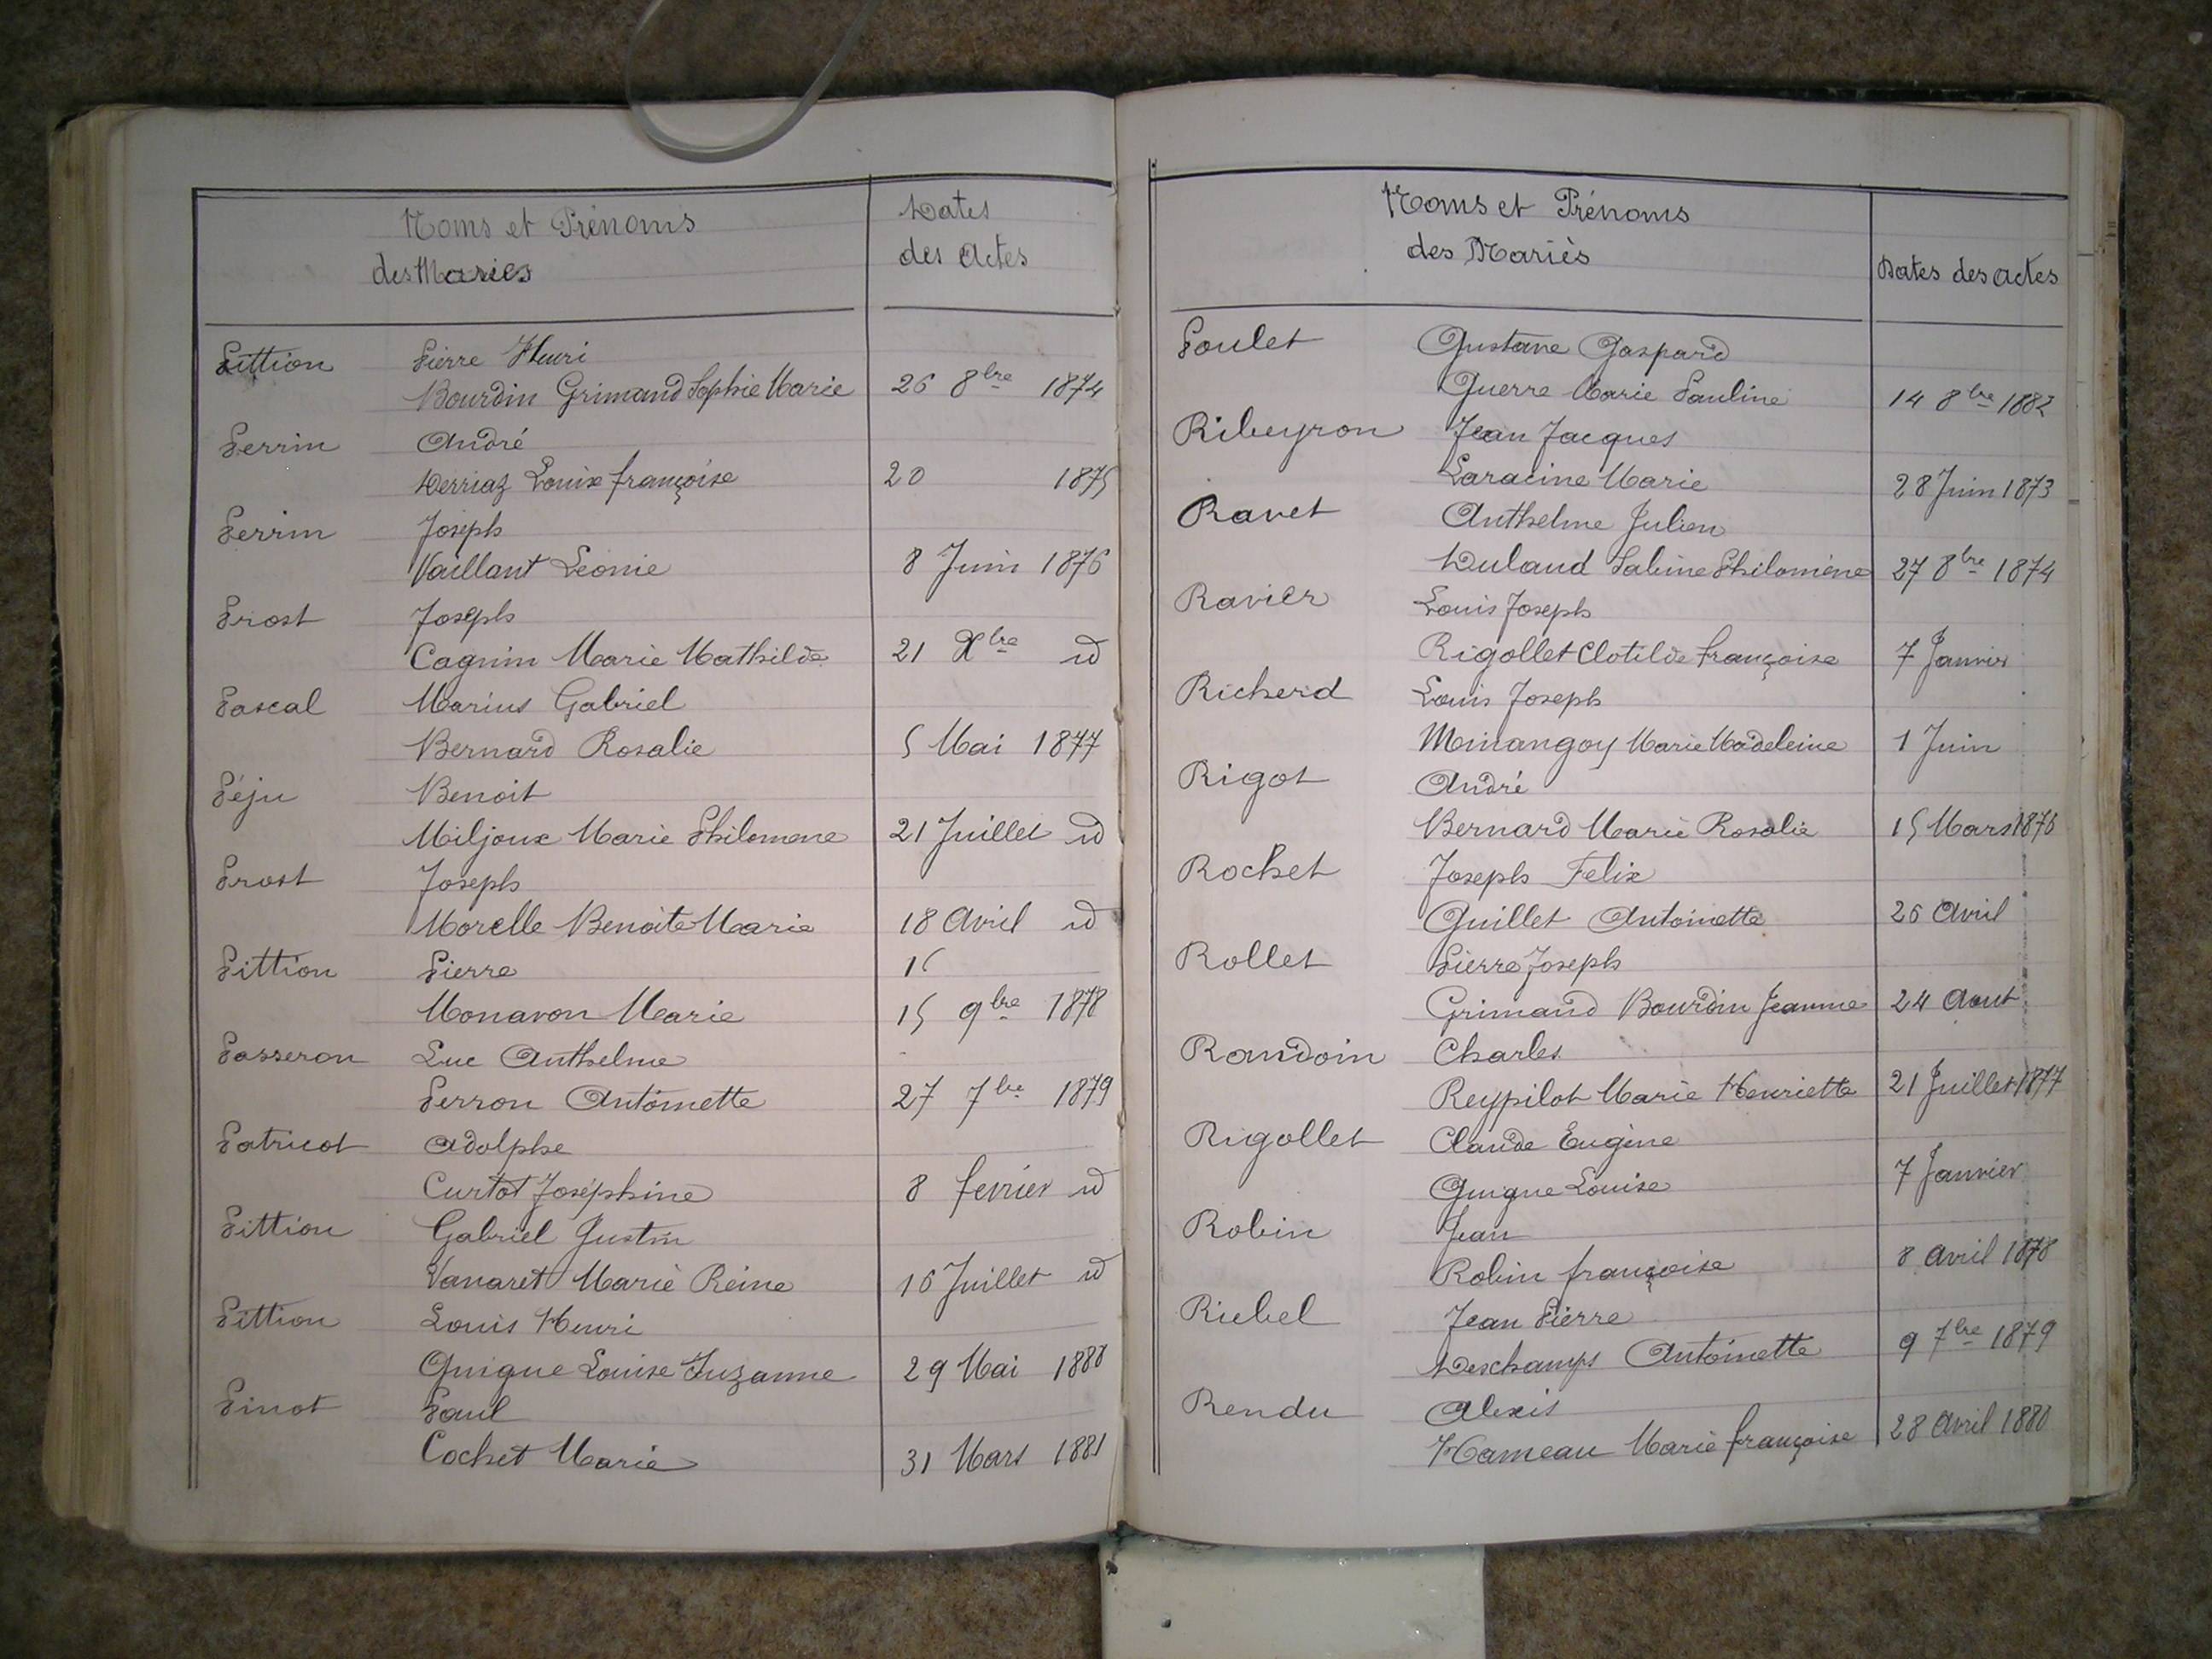 Noms et Prénoms
des Mariés
Dates
des Actes
Pittion Pierre Henri
Bourdin Grimaud Sophie Marie 26 8bre 1874
Perrin André
Derriaz Louise françoise 20 1875
Perrin Joseph
Vaillant Léonie 8 Juin 1876
Prost Joseph
Cagnin Marie Mathilde 21 Xbre id
Pascal Marius Gabriel
Bernard Rosalie 5 Mai 1877
Péju Benoit
Miljoux Marie Philomene 21 Juillet id
Prost Joseph
Morelle Benoite Marie 18 Avril id
Pittion Pierre
Monavon Marie 15 9bre 1878
Passeron Luc Anthelme
Perron Antoinette 27 7bre 1879
Patricot Adolphe
Curtot Joséphine 8 fevrier id
Pittion Gabriel Justin
Vanaret Marie Reine 16 Juillet id
Pittion Louis Henri
Guigue Louise Suzanne 29 Mai 1880
Pinot Paul
Cochet Marie 31 Mars 1881
Noms et Prénoms
des Mariès
Dates des actes
Poulet Gustave Gaspard
Guerre Marie Pauline 14 8bre 1882
Ribeyron Jean Jacques
Laracine Marie 28 Juin 1873
Ravet Anthelme Julien
Dulaud Sabine Philomène 27 8bre 1874
Ravier Louis Joseph
Rigollet Clotilde françoise 7 Janvier
Richerd Louis Joseph
Minangoy Marie Madeleine 1 Juin
Rigot André
Bernard Marie Rosalie 15 Mars 1876
Rochet Joseph Felix
Guillet Antoinette 26 Avril
Rollet Pierre Joseph
Grimaud Bourdin Jeanne 24 Aout
Randoin Charles
Reypilot Marie Henriette 21 Juillet 1877
Rigollet Claude Eugène
Guigue Louise 7 Janvier
Robin Jean
Robin françoise 8 avril 1878
Riebel Jean Pierre
Deschamps Antoinette 9 7bre 1879
Rendu Alexis
Hameau Marie françoise 28 Avril 1880